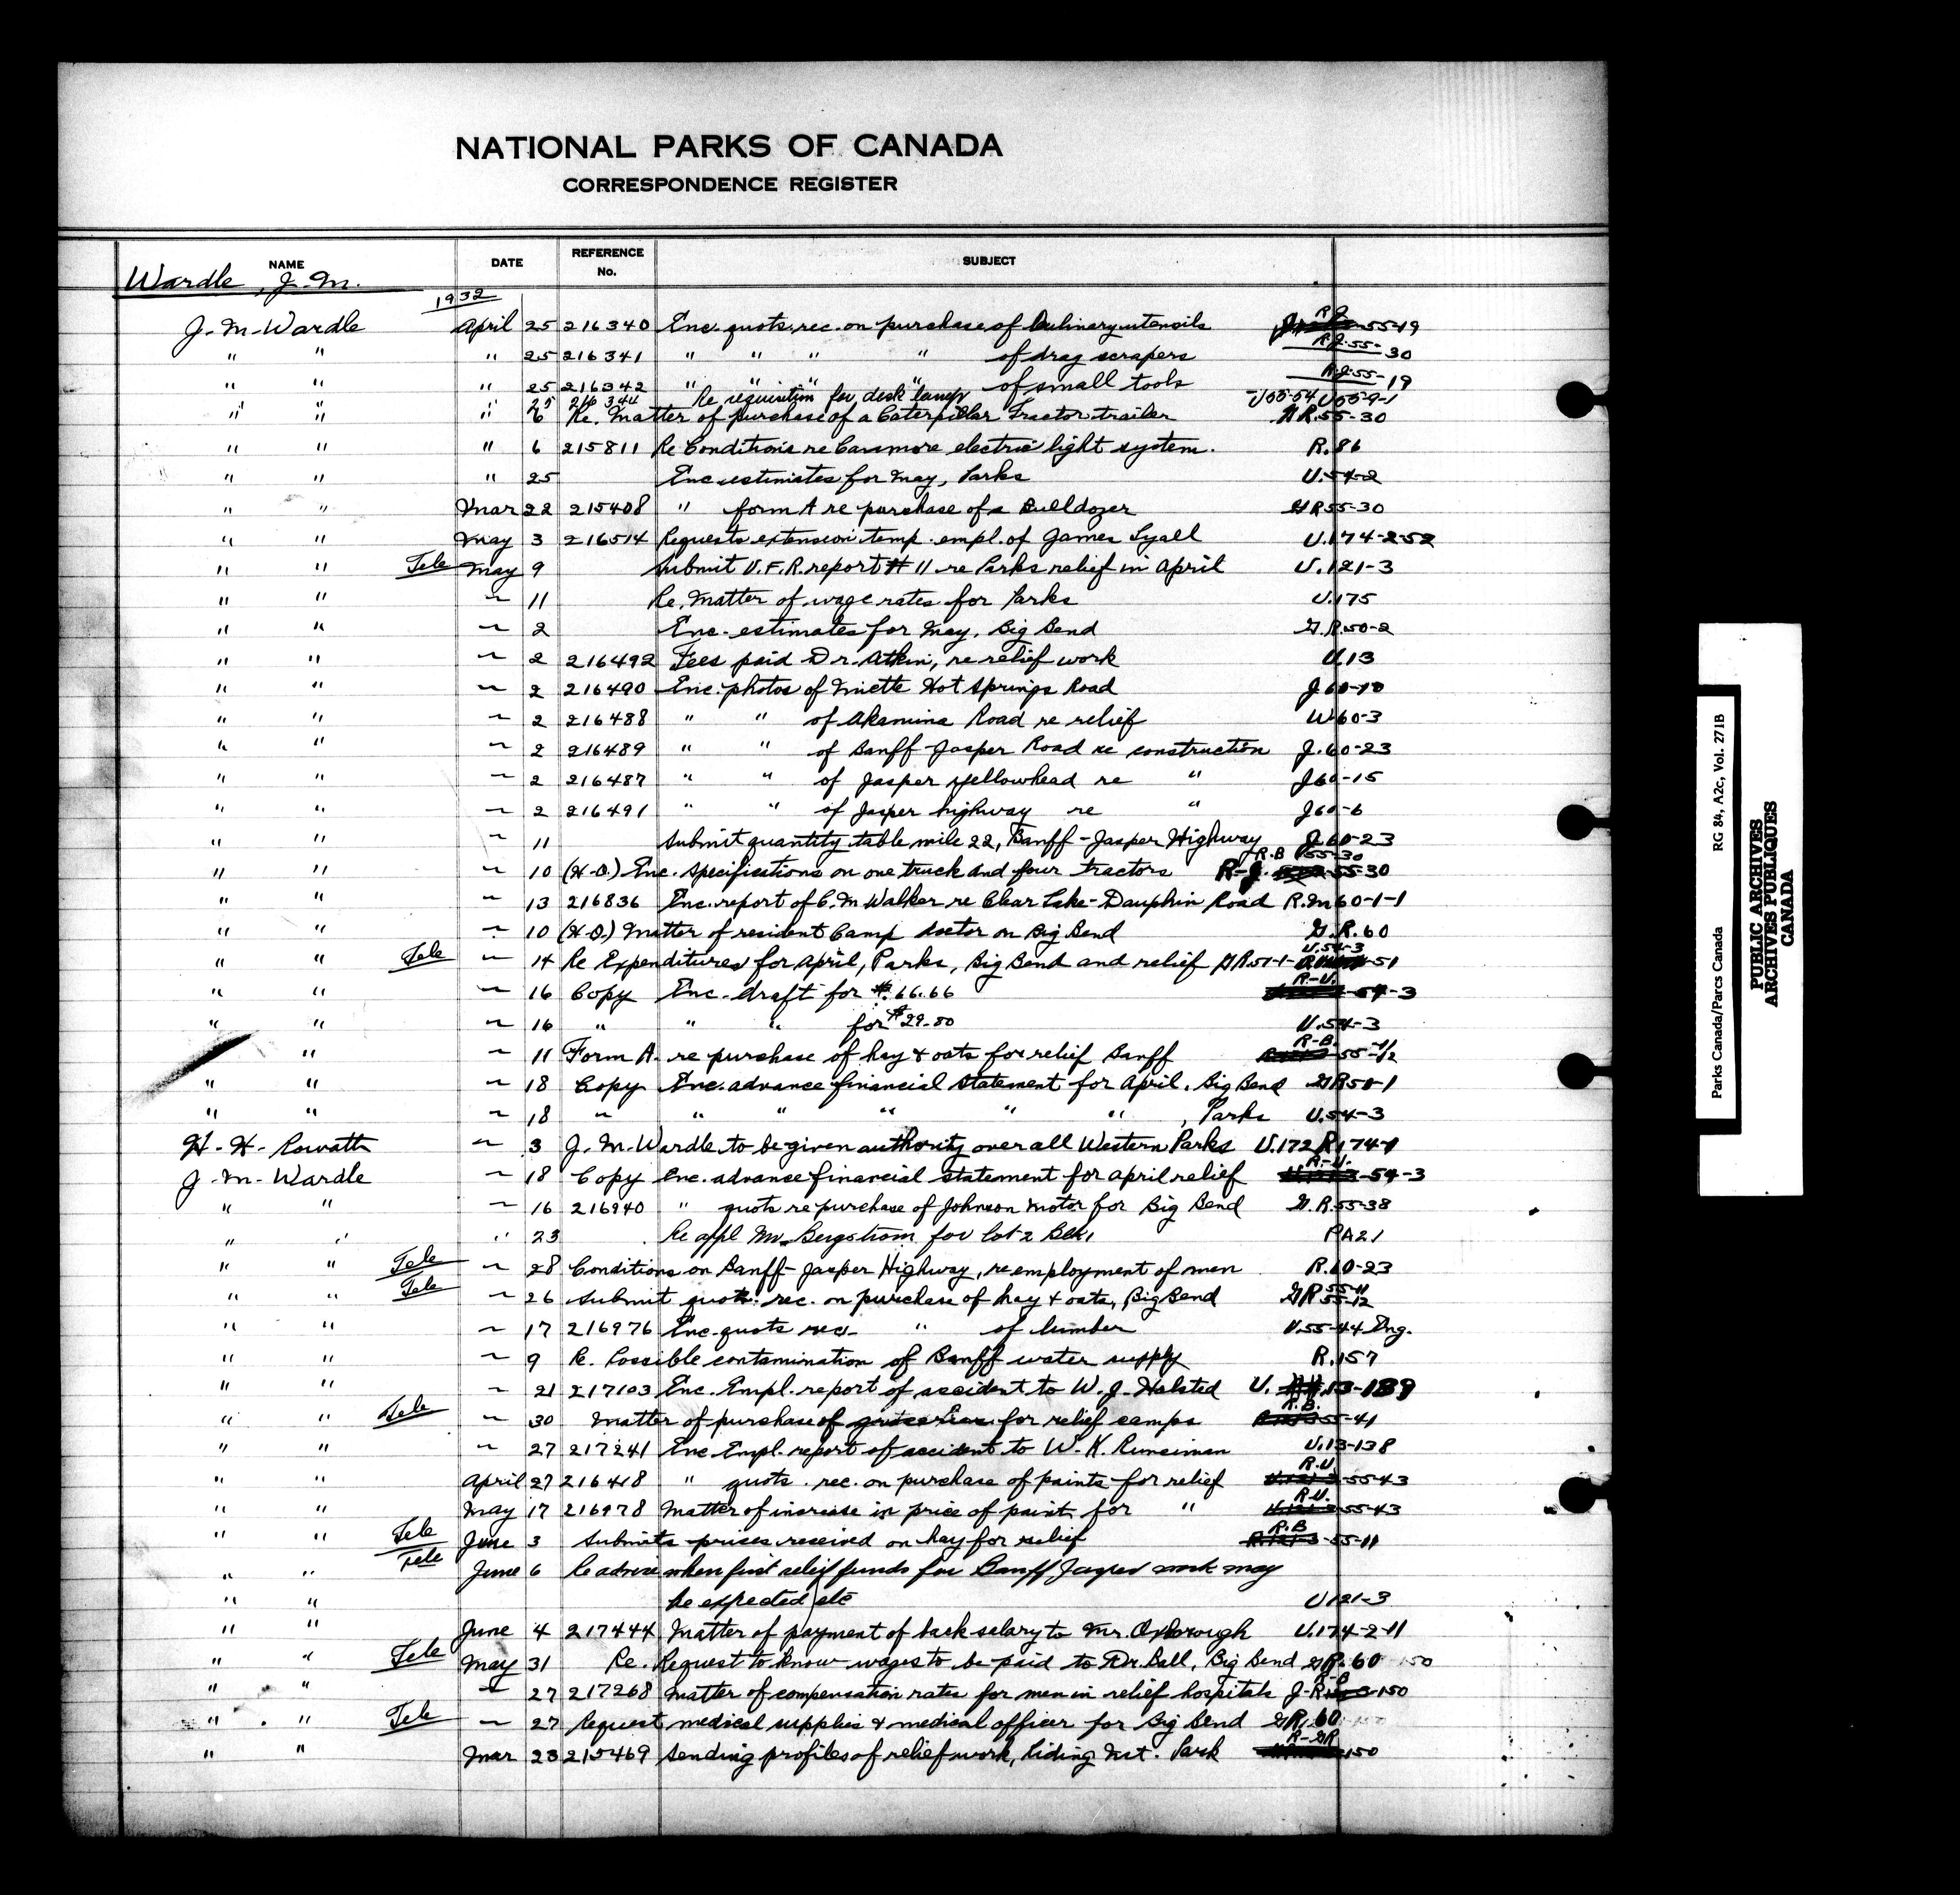 NATIONAL PARKS OF CANADA
CORRESPONDENCE REGISTER
NAME DATE REFERENCE No. SUBJECT
Wardle, J. M.
1932
J. M. Wardle April 25 216340 Enc. quots. rec. on purchase of Culinary utensils R.J. 55-19
" " " 25 216341 " " " " of drag scrapers R.J. 55-30
" " " 25 216342 " " " " of small tools R.J. 55-19
25 216344 Re requisition for desk lamp U55-54 U55-9-1
" " " 6 Re. Matter of purchase of a Caterpillar Tractor trailer G.R. 55-30
" " " 6 215811 Re Conditions re Canmore electric light system. R.86
" " " 25 Enc estimates for May, Parks U.54-2
" " Mar 22 215408 " form A re purchase of a Bulldozer G.R. 55-30
" " May 3 216514 Requests extension temp. empl. of James Lyall U.174-2-52
" " Tele May 9 Submit U.F.R. report # 11 re Parks relief in April U.121-3
" " ~ 11 Re. Matter of wage rates for Parks U.175
" " ~ 2 Enc. estimates for May, Big Bend G.R. 50-2
" " ~ 2 216492 Fees paid Dr. Atkin, re relief work U.13
" " ~ 2 216490 Enc. photos of Miette Hot Springs Road J.60-10
" " ~ 2 216488 " " of Akamina Road re relief W60-3
" " ~ 2 216489 " " of Banff-Jasper Road re construction J.60-23
" " ~ 2 216487 " " of Jasper Yellowhead re " J60-15
" " ~ 2 216491 " " of Jasper highway re " J60-6
" " ~ 11 Submit quantity table mile 22, Banff-Jasper Highway J.60-23
R.B 55-30
" " ~ 10 (H.O.) Enc. specifications on one truck and four tractors R-J. 55-30
" " ~ 13 216836 Enc. report of C.M. Walker re Clear Lake-Dauphin Road R.M60-1-1
" " ~ 10 (H.O.) Matter of resident Camp doctor on Big Bend G.R. 60
U.54-3
" " Tele ~ 14 Re Expenditures for April, Parks, Big Bend and relief G.R.51-1- 51
" " ~ 16 Copy Enc. draft for $.66.66 R-U. 54-3
" " ~ 16 " " " for $29.80 U.54-3
" ~ 11 Form A. re purchase of hay & oats for relief Banff R-B. 55-11/12
" " ~ 18 Copy Enc. advance financial statement for April. Big Bend G.R 50-1
" " ~ 18 ~ " " " " " , Parks U.54-3
H. H. Rowatt ~ 3 J. M. Wardle to be given authority over all Western Parks U.172 R174-1
J. M. Wardle ~ 18 Copy Enc. advance financial statement for April relief R-U. 54-3
" " ~ 16 216940 " quots re purchase of Johnson Motor for Big Bend G.R. 55-38
" " " 23 Re appl Mr. Bergstrom for lot 2 Blk 1 PA21
" " Tele ~ 28 Conditions on Banff-Jasper Highway, re employment of men R.60-23
" " Tele ~ 26 Submit quots. rec. on purchase of hay & oats, Big Bend G.R 55-11 55-12
" " ~ 17 216976 Enc. quots rec. " of lumber U.55-44 Eng.
" " ~ 9 Re. Possible contamination of Banff water supply R.157
" " ~ 21 217103 Enc. Empl. report of accident to W. J. Halsted U. 13-139
" " Tele ~ 30 Matter of purchase of groceries for relief camps R.B. 55-41
" " ~ 27 217241 Enc. Empl. report of accident to W. K. Runciman U.13-138
" " April 27 216418 " quots. rec. on purchase of paints for relief R.U. 55-43
" " May 17 216978 Matter of increase in price of paint for " R.U. 55-43
" " Tele June 3 Submits prices received on hay for relief R.B 55-11
" " Tele June 6 Re advise when first relief funds for Banff Jasper work may
" " be expected etc U121-3
" " June 4 217444 Matter of payment of back salary to Mr. Oxborough U.174-2-11
" " Tele May 31 Re. Request to know wages to be paid to Dr. Ball, Big Bend G.R. 60 150
" " ~ 27 217268 Matter of compensation rates for men in relief hospitals J-R 150
" " Tele ~ 27 Request medical supplies & medical officer for Big Bend G.R. 60
" " Mar 23 215469 Sending profiles of relief work, Riding Mt. Park R-GR 150
Parks Canada/Parcs Canada RG 84, A2c, Vol. 271B
PUBLIC ARCHIVES
ARCHIVES PUBLIQUES
CANADA